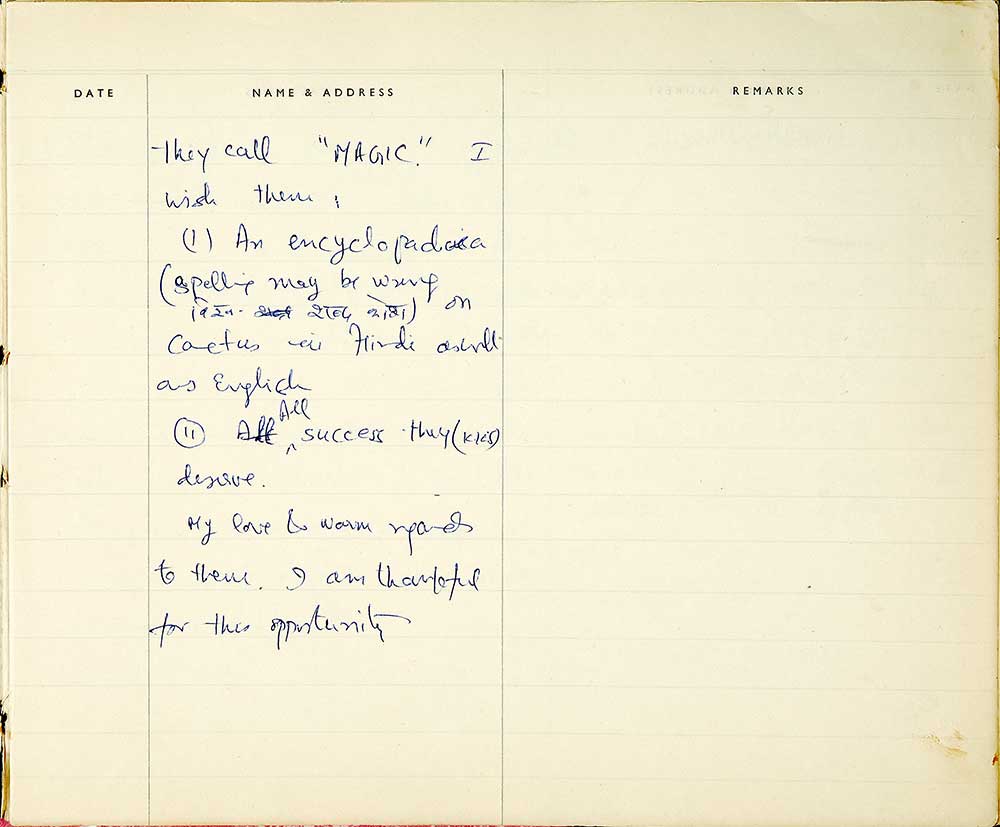 DATE NAME & ADDRESS REMARKS
They call "MAGIC." I
wish them :
(1) An encyclopadaica
(spelling may be wrong
विश्व शब्द कोश) on
Cactus in Hindi aswell
as English
(11) All success they (kids)
deserve.
My love & warm regards
to them. I am thankful
for this opportunity